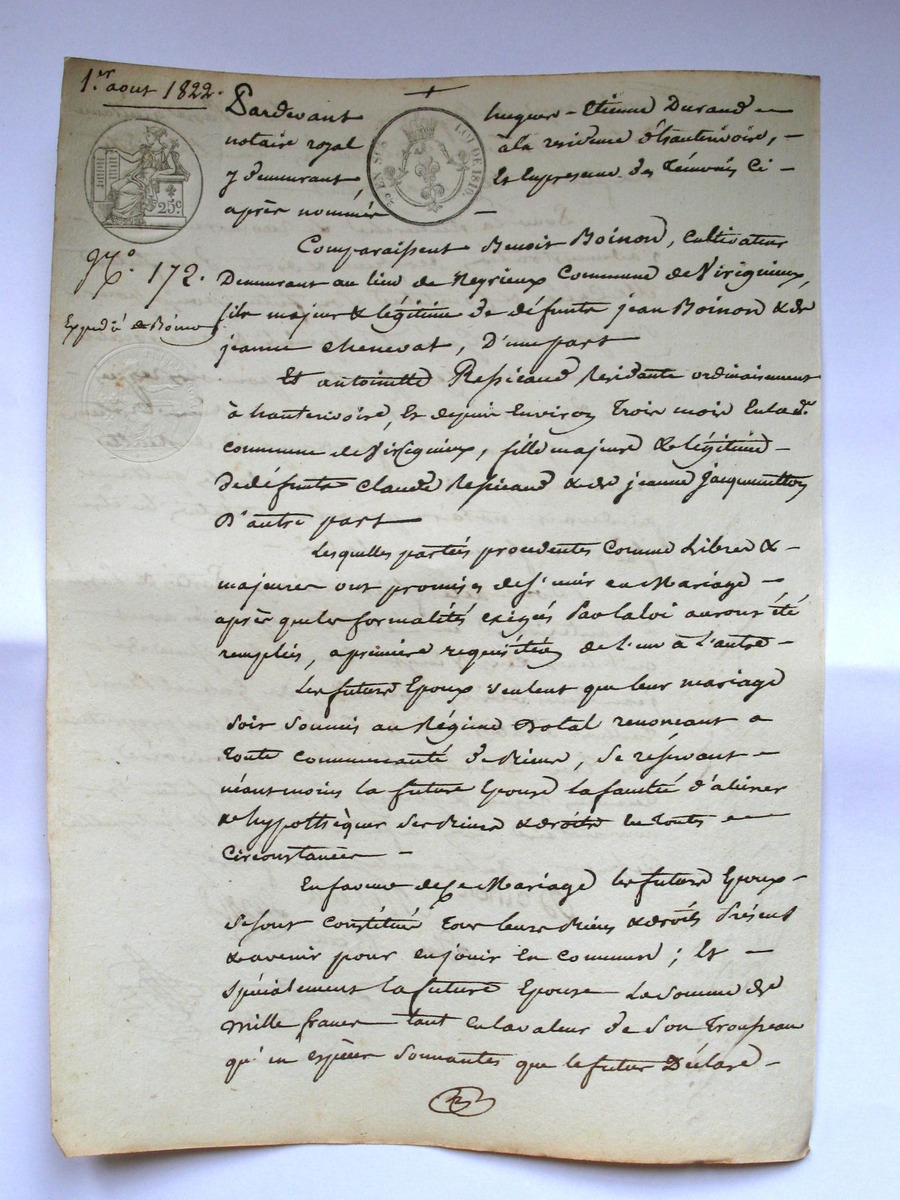 1.er aout 1822.
Pardevant hugues-Etienne Durand
notaire royal à la residence d'hauterivoire,
y demeurant Et En presence des Témoins Ci
après nommés
LOI DE 1816.
25c.
No. 172.
Expédié
Comparaissent Benoit Boinon, cultivateur
Demeurant au lieu de Neyrieux Commune de Viriguieux,
fils majeur & légitime de défunts jean Boinon & de
jeanne chenevat, D'une part
Et antoinette Ressicaud Residante ordinairement
à hauterivoire, Et depuis Environ Trois mois En lad.e
commune de Virieguieux, fille majeure & légitime
De défunts Claude Ressicaud & de jeanne jacquemetton
D'autre part
Lesquelles parties procedentes Comme Libres &
majeures ont promis de s'unir en Mariage
après que les formalités exigées Par la loi auront été
remplies, a première requisition de l'un à l'autre
Les futurs Epoux veulent que leur mariage
soit soumis au Régime Dotal renoncant a
toute communauté de Biens, se réservant
néantmoins la future Epouse la faculté d'aliéner
& hypothèquer ses Biens & droits En toutes
Circonstances
En faveur de Ce Mariage les futurs Epoux
se sont constitués tous leurs Biens & droits Présents
& avenir pour en jouir En commun ; Et
spécialement la future Epouse La somme de
mille francs tant en la valeur de son Troupeau
qu'en espèces sonnantes que le futur Déclare